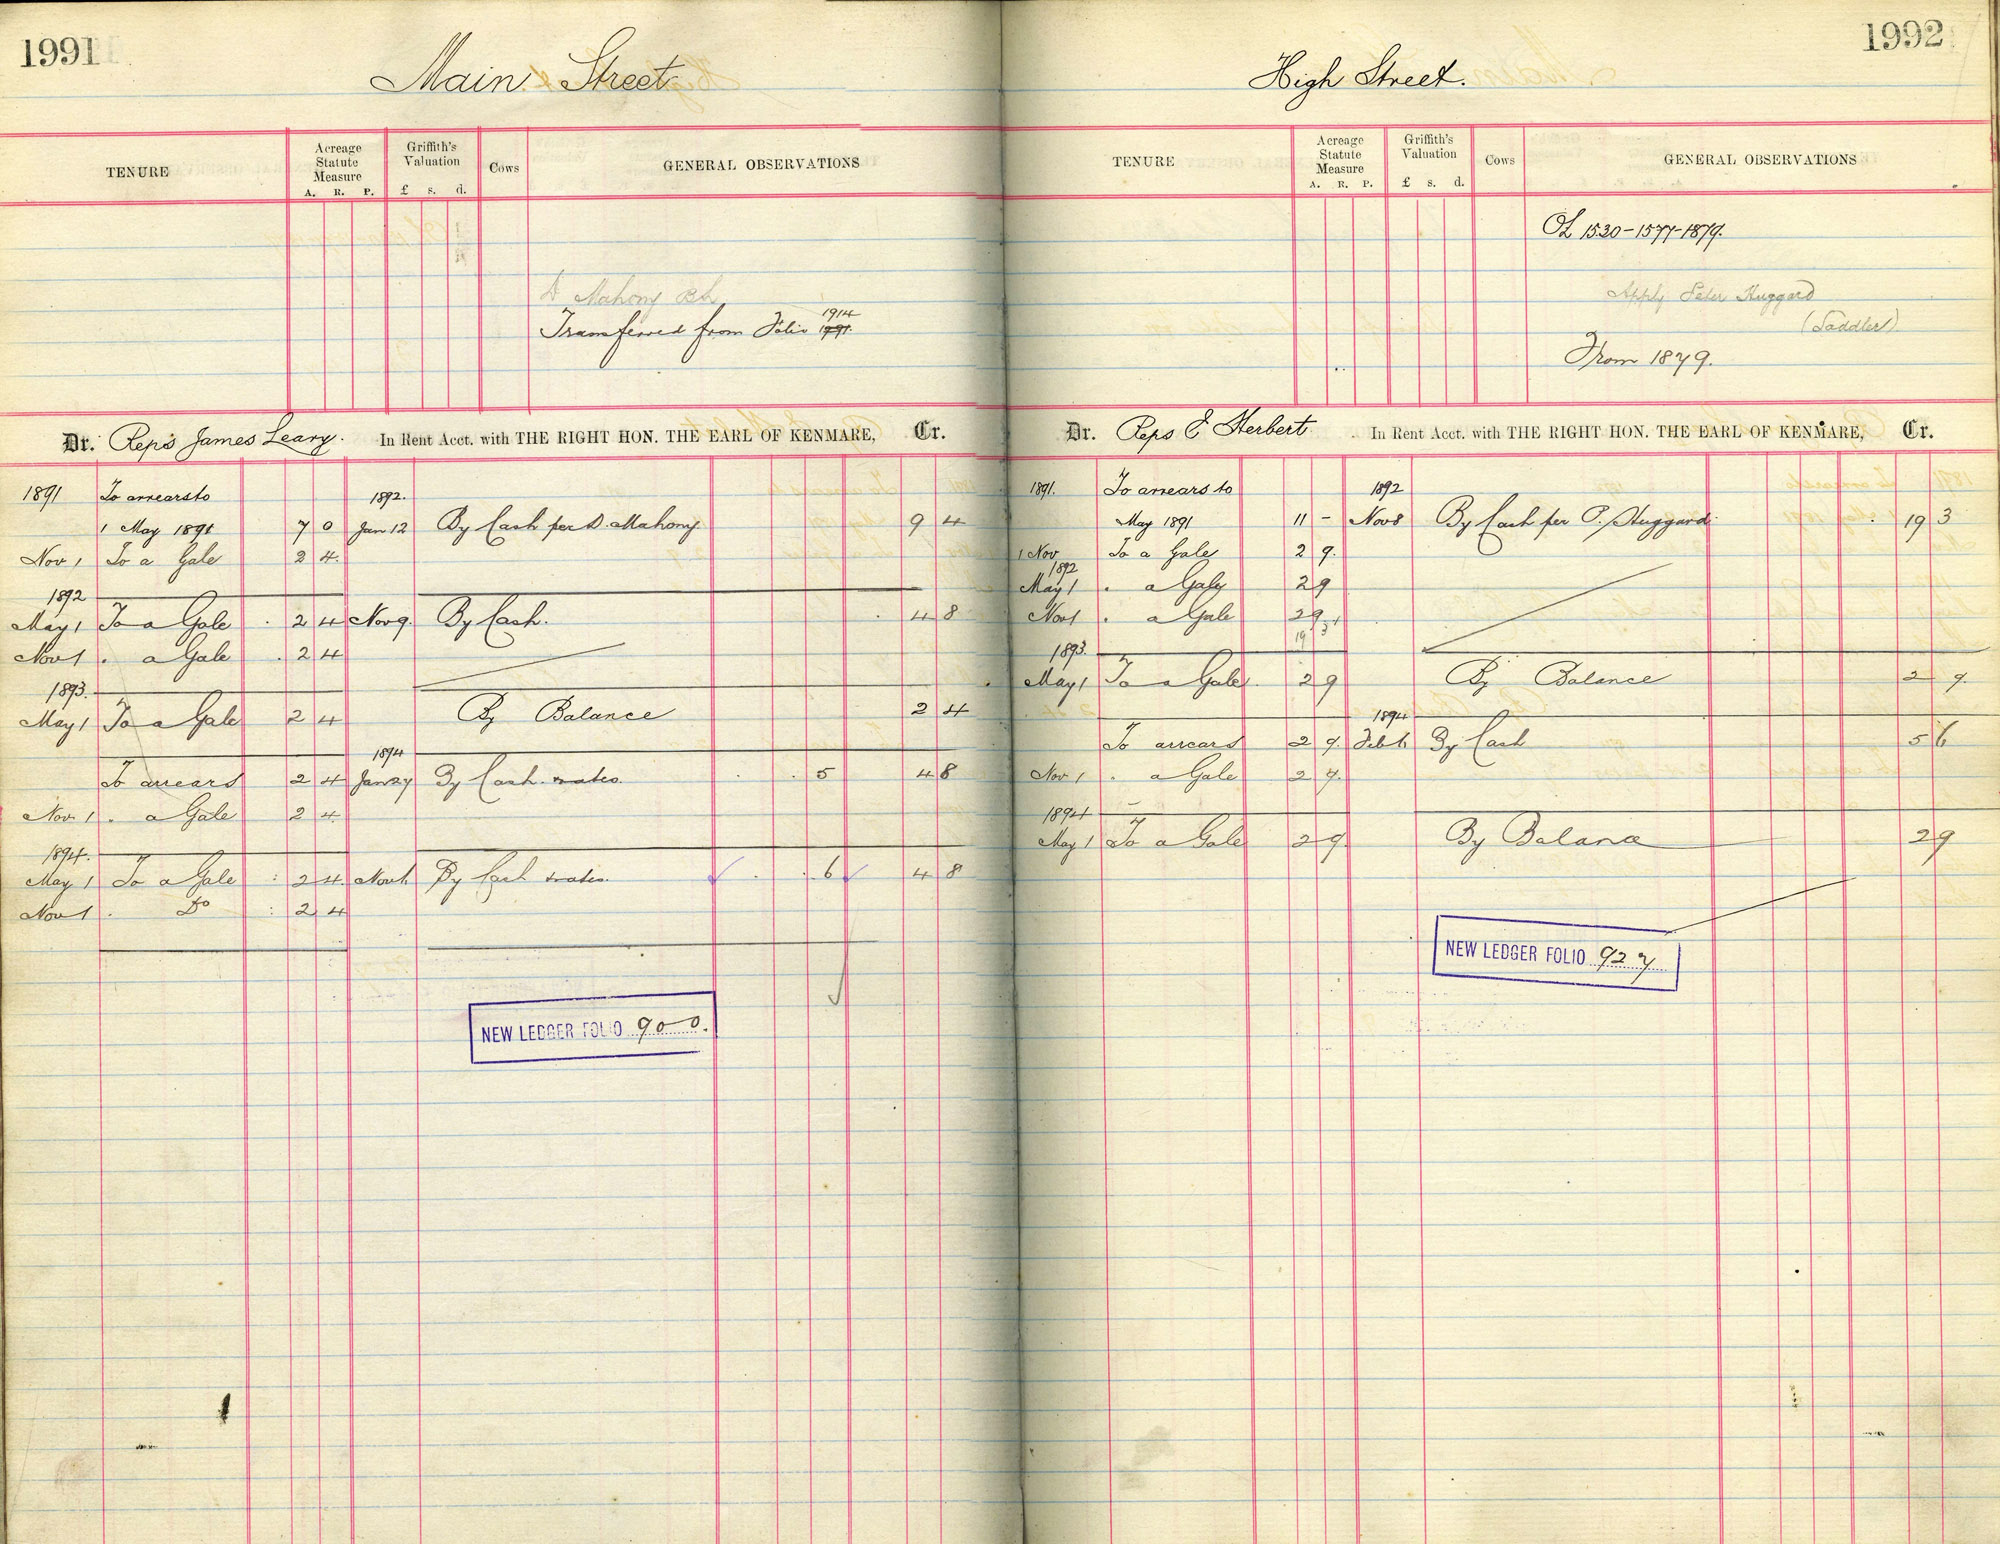 1991
Main Street
TENURE
Acreage Statute Measure
A. R. P.
Griffith's Valuation
£ s. d.
Cows
GENERAL OBSERVATIONS
D Mahony Bh
1914
Transferred from Folio 1991.
Dr. Reps James Leary. In Rent Acct. with THE RIGHT HON. THE EARL OF KENMARE, Cr.
1891 To arrears to 1892.
1 May 1891 7 0 Jan 12 By Cash per D. Mahony 9 4
Nov 1 To a Gale 2 4
1892
May 1 To a Gale 2 4 Nov 9. By Cash. 4 8
Nov 1 . a Gale 2 4
1893.
May 1 To a Gale 2 4 By Balance 2 4
1894
To arrears 2 4 Jan 27 By Cash rates. 5 4 8
Nov 1 . a Gale 2 4
1894.
May 1 To a Gale 2 4 Nov 6 By Cash rates. 6 4 8
Nov 1 . Do 2 4
NEW LEDGER FOLIO 900.
1992
High Street.
TENURE
Acreage Statute Measure
A. R. P.
Griffith's Valuation
£ s. d.
Cows
GENERAL OBSERVATIONS
OL 1530-1577-1879.
Apply Peter Huggard
(Saddler)
From 1879.
Dr. Reps E Herbert In Rent Acct. with THE RIGHT HON. THE EARL OF KENMARE, Cr.
1891. To arrears to 1892
May 1891 11 - Nov 8 By Cash per P. Huggard. 19 3
1 Nov To a Gale 2 9.
1892
May 1 . a Gale 2 9
Nov 1 . a Gale 2 9
19 3
1893.
May 1 To a Gale. 2 9 By Balance 2 9.
1894
To arrears 2 9. Feb 6 By Cash 5 6
Nov 1 . a Gale 2 9.
1894
May 1 To a Gale 2 9. By Balance 2 9
NEW LEDGER FOLIO 927